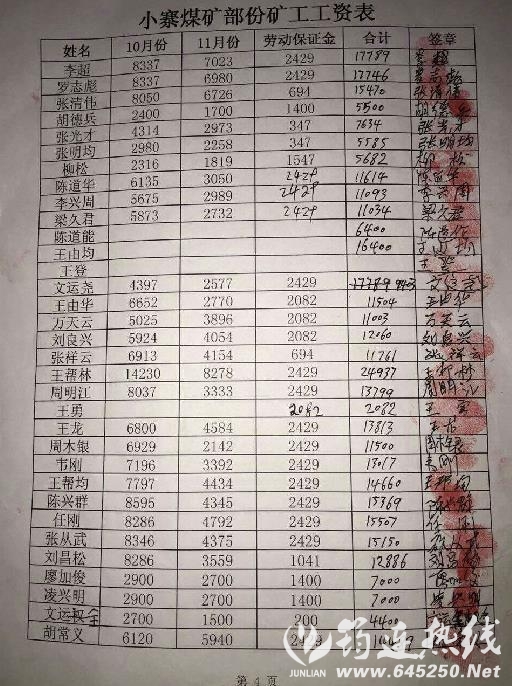 小寨煤矿部份矿工工资表
姓名 10月份 11月份 劳动保证金 合计 签章
李超 8337 7023 2429 17789 李超
罗志彪 8337 6980 2429 17746 罗志彪
张清伟 8050 6726 694 15470 张清伟
胡德兵 2400 1700 1400 5500 胡德兵
张光才 4314 2973 347 7634 张光才
张明均 2980 2258 347 5585 张明均
柳松 2316 1819 1547 5682 柳松
陈道华 6135 3050 2429 11614
李兴周 5675 2989 2429 11093 李兴周
梁久君 5873 2732 2429 11034 梁久君
陈道能 6400
王由均 16400
王登 王登
文运尧 4397 2577 2429 9403
王由华 6652 2770 2082 11504
万天云 5025 3896 2082 11003 万天云
刘良兴 5924 4054 2082 12060 刘良兴
张祥云 6913 4154 694 11761 张祥云
王帮林 14230 8278 2429 24937
周明江 8037 3333 2429 13799 周明江
王勇 2082 2082
王龙 6800 4584 2429 13813 王龙
周木银 6929 2142 2429 11500
韦刚 7196 3392 2429 13017
王帮均 7797 4434 2429 14660
陈兴群 8595 4345 2429 15369
任刚 8286 4792 2429 15507
张从武 8346 4375 2429 15150
刘昌松 8286 3559 1041 12886
廖加俊 2900 2700 1400 7000
凌兴明 2900 2700 1400 7000
文运全 2700 1500 200 4400
胡常义 6120 5940 2429
第 4 页
筠连热线
JUNLIAN
www.645250.Net